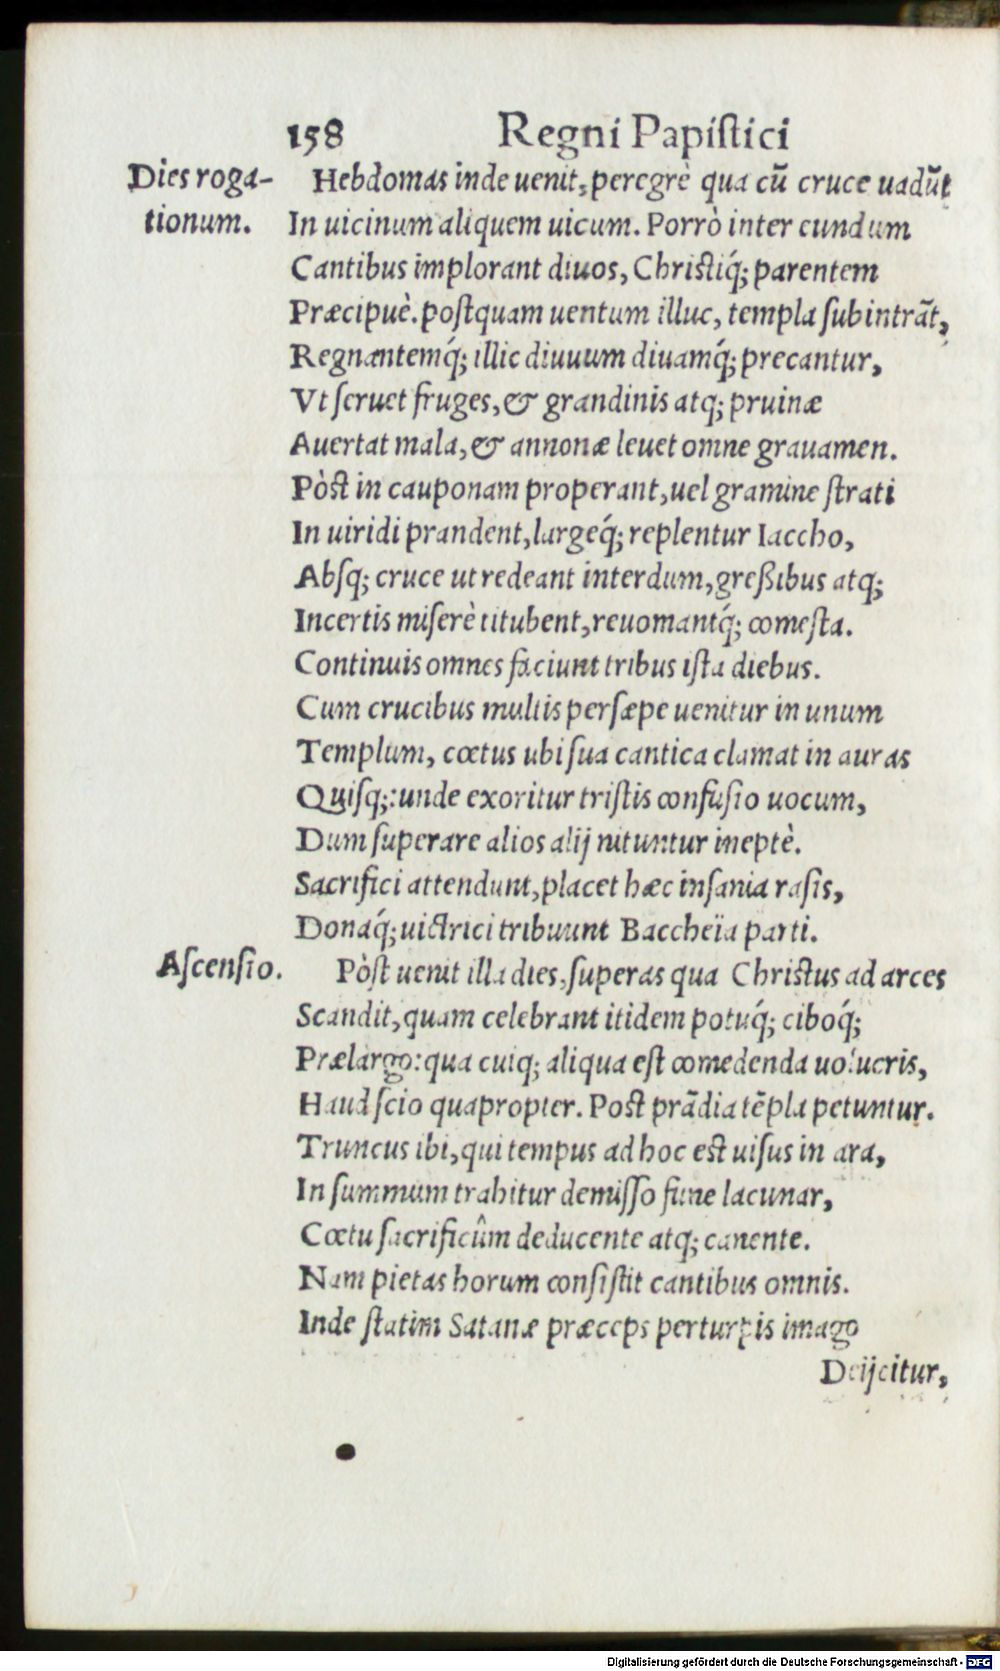 158 Regni Papiſtici
Dies roga-
tionum.
Hebdomas inde uenit, peregrè qua cũ cruce uadũt
In uicinum aliquem uicum. Porrò inter eundum
Cantibus implorant diuos, Chriſtiq́; parentem
Præcipuè. poſtquam uentum illuc, templa ſubintrãt,
Regnantemq́; illic diuuum diuamq́; precantur,
Vt ſeruet fruges, & grandinis atq; pruinæ
Auertat mala, & annonæ leuet omne grauamen.
Pòſt in cauponam properant, uel gramine ſtrati
In uiridi prandent, largeq́; replentur Iaccho,
Abſq; cruce ut redeant interdum, greßibus atq;
Incertis miſerè titubent, reuomantq́; comeſta.
Continuis omnes faciunt tribus iſta diebus.
Cum crucibus multis perſæpe uenitur in unum
Templum, cœtus ubi ſua cantica clamat in auras
Quiſq;: unde exoritur triſtis confuſio uocum,
Dum ſuperare alios alij nituntur ineptè.
Sacrifici attendunt, placet hæc inſania raſis,
Donaq́; uictrici tribuunt Baccheïa parti.
Aſcenſio.
Pòſt uenit illa dies, ſuperas qua Chriſtus ad arces
Scandit, quam celebrant itidem potuq́; ciboq́;
Prælargo: qua cuiq; aliqua eſt comedenda uolucris,
Haud ſcio quapropter. Poſt prãdia tẽpla petuntur.
Truncus ibi, qui tempus ad hoc eſt uiſus in ara,
In ſummum trahitur demiſſo fune lacunar,
Cœtu ſacrificûm deducente atq; canente.
Nam pietas horum conſiſtit cantibus omnis.
Inde ſtatim Satanæ præceps perturpis imago
Deijcitur,
Digitalisierung gefördert durch die Deutsche Forschungsgemeinschaft - DFG